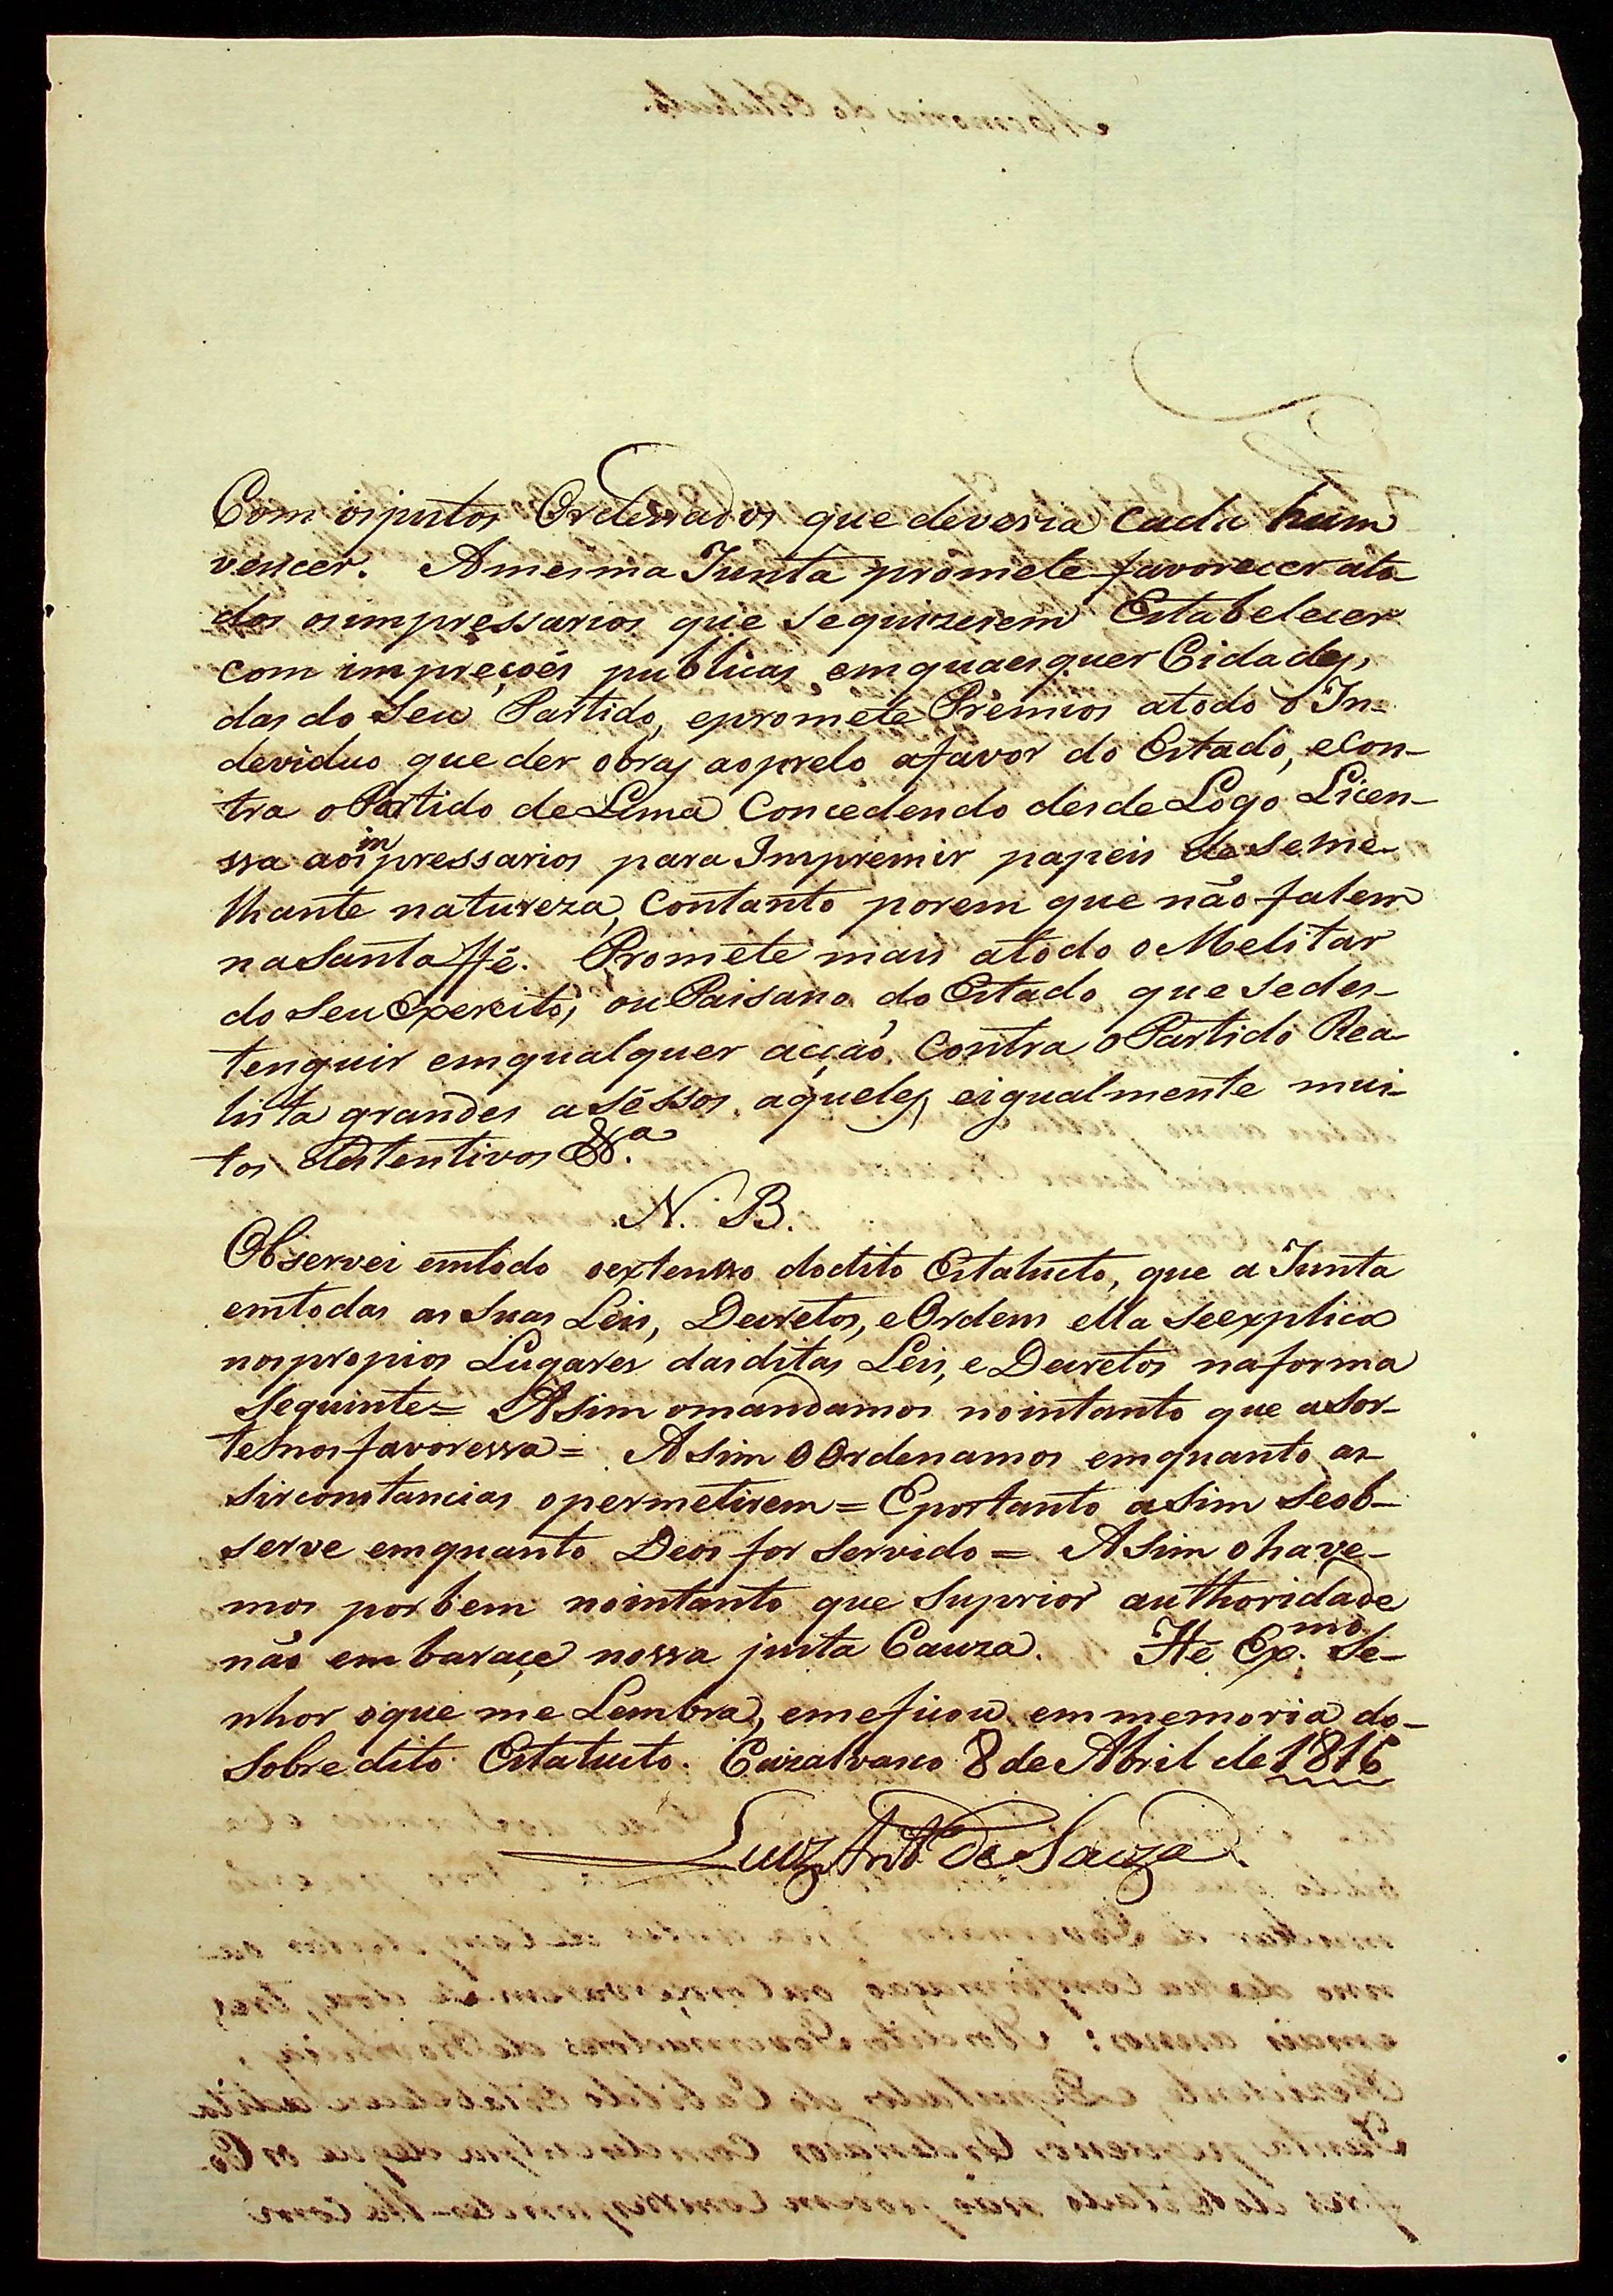 Com os justos Ordenados que deveria cada hum
vencer. Amesma Junta promete favorecer ato
dos osimpressarios que sequizerem Estabelecer
com impreçoés publicas emquaesquer Cidades,
das do Seu Partido, epromete Prêmios atodo o In-
deviduo que der obras aoprelo afavor do Estado, econ-
tra oPartido deLima Concedendo desdeLogo Licen-
ssa aos inpressarios para Impremir papeis de seme-
lhante natureza, Contanto porem que não falem
naSanta ffé. Promete mais atodo o Melitar
do seu Exercito, ou Paisano do Estado que sedes-
tenguir emqualquer acção Contra oPartido Rea-
lista grandes asêssos aqueles, eigualmente mui-
tos destentivos &.ª
N. B.
Observei emtodo oextensso dodito Estatucto, que a Junta
emtodas as Suas Leis, Decretos, eOrdens ella seexplica
nospropios Lugares dasditas Leis, e Decretos naforma
Seguinte= ASim omandamos nointanto que asor-
teSnosfavoressa= ASim oOrdenamos emquanto as
Sirconstancias opermetirem= Eportanto aSim Seob-
serve emquanto Deos for Servido= ASim ohave-
mos porbem nointanto que Suprior authoridade
não embarace nossa justa Cauza. Hé Ex.mo Se-
nhor oque me Lembra, emeficou emmemoria do
Sobredito Estatucto. Cazalvasco 8 de Abril de 1816
Luiz Antº de Souza